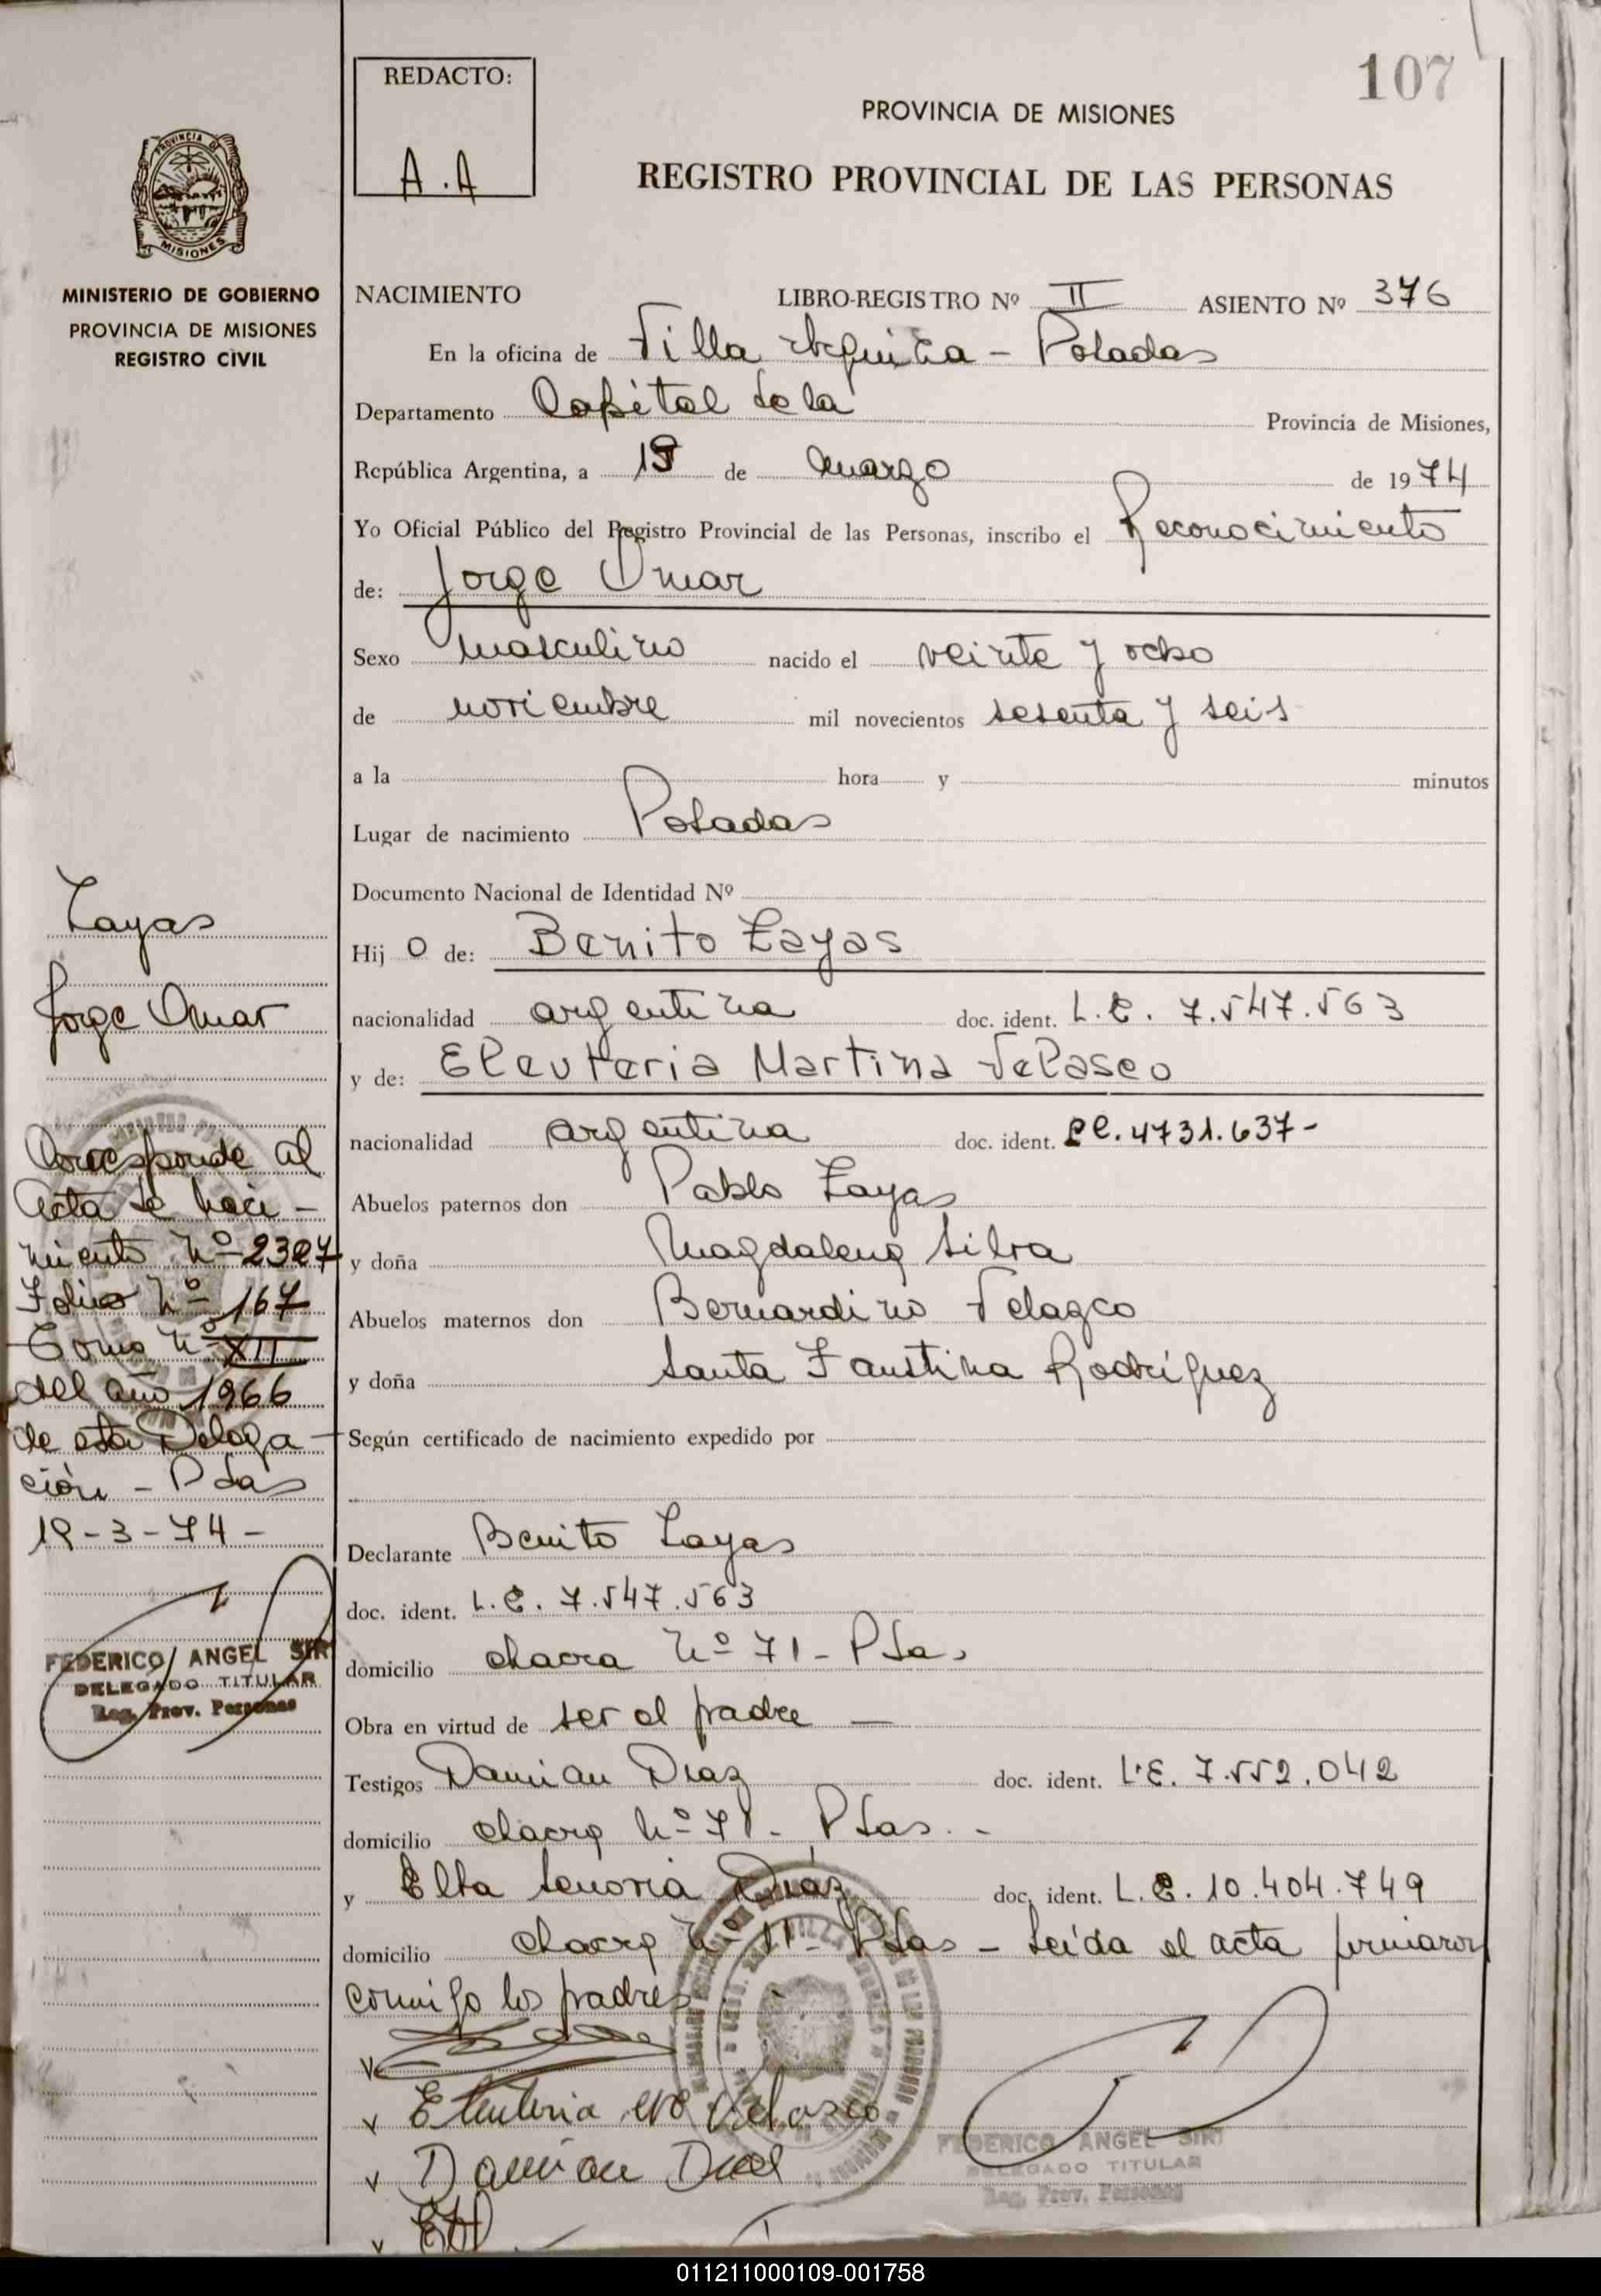 107
REDACTO:
A.A
PROVINCIA DE MISIONES
REGISTRO PROVINCIAL DE LAS PERSONAS
PROVINCIA DE
MISIONES
MINISTERIO DE GOBIERNO
PROVINCIA DE MISIONES
REGISTRO CIVIL
NACIMIENTO LIBRO-REGISTRO Nº II ASIENTO Nº 376
En la oficina de Villa Urquiza - Posadas
Departamento Capital de la Provincia de Misiones,
República Argentina, a 19 de marzo de 1974
Yo Oficial Público del Registro Provincial de las Personas, inscribo el Reconocimiento
de: Jorge Omar
Sexo masculino nacido el veinte y ocho
de noviembre mil novecientos sesenta y seis
a la hora y minutos
Lugar de nacimiento Posadas
Documento Nacional de Identidad Nº
Hij o de: Benito Zayas
nacionalidad argentina doc. ident. L.E. 7.547.563
y de: Eleuteria Martina Velasco
nacionalidad argentina doc. ident. LC. 4731.637-
Abuelos paternos don Pablo Zayas
y doña Magdalena Silva
Abuelos maternos don Bernardino Velazco
y doña Santa Faustina Rodríguez
Según certificado de nacimiento expedido por
Declarante Benito Zayas
doc. ident. L.E. 7.547.563
domicilio chacra Nº 71 - Psdas
Obra en virtud de ser el padre —
Testigos Damian Diaz doc. ident. L.E. 7.552.042
domicilio chacra Nº 71 - Psdas. -
y Elba Diaz doc. ident. L.C. 10.404.749
domicilio chacra Nº 71 - Psdas - Leída el acta firmaron
conmigo los padres
Velasco
Damian Diaz
FEDERICO ANGEL SIRI
DELEGADO TITULAR
Reg. Prov. Personas
Zayas
Jorge Omar
Corresponde al
acta de naci-
miento Nº 2327
Folio Nº 167
Tomo Nº XII
del año 1966
de esta Delega-
ción - Psdas
19-3-74-
FEDERICO ANGEL SIRI
DELEGADO TITULAR
Reg. Prov. Personas
011211000109-001758